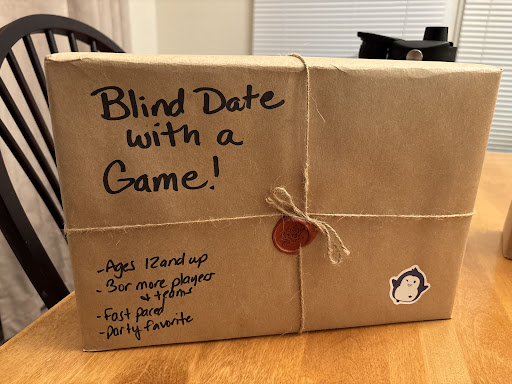 Blind Date
with a
Game!
-Ages 12 and up
-3 or more players
& teams
-Fast paced
-Party favorite